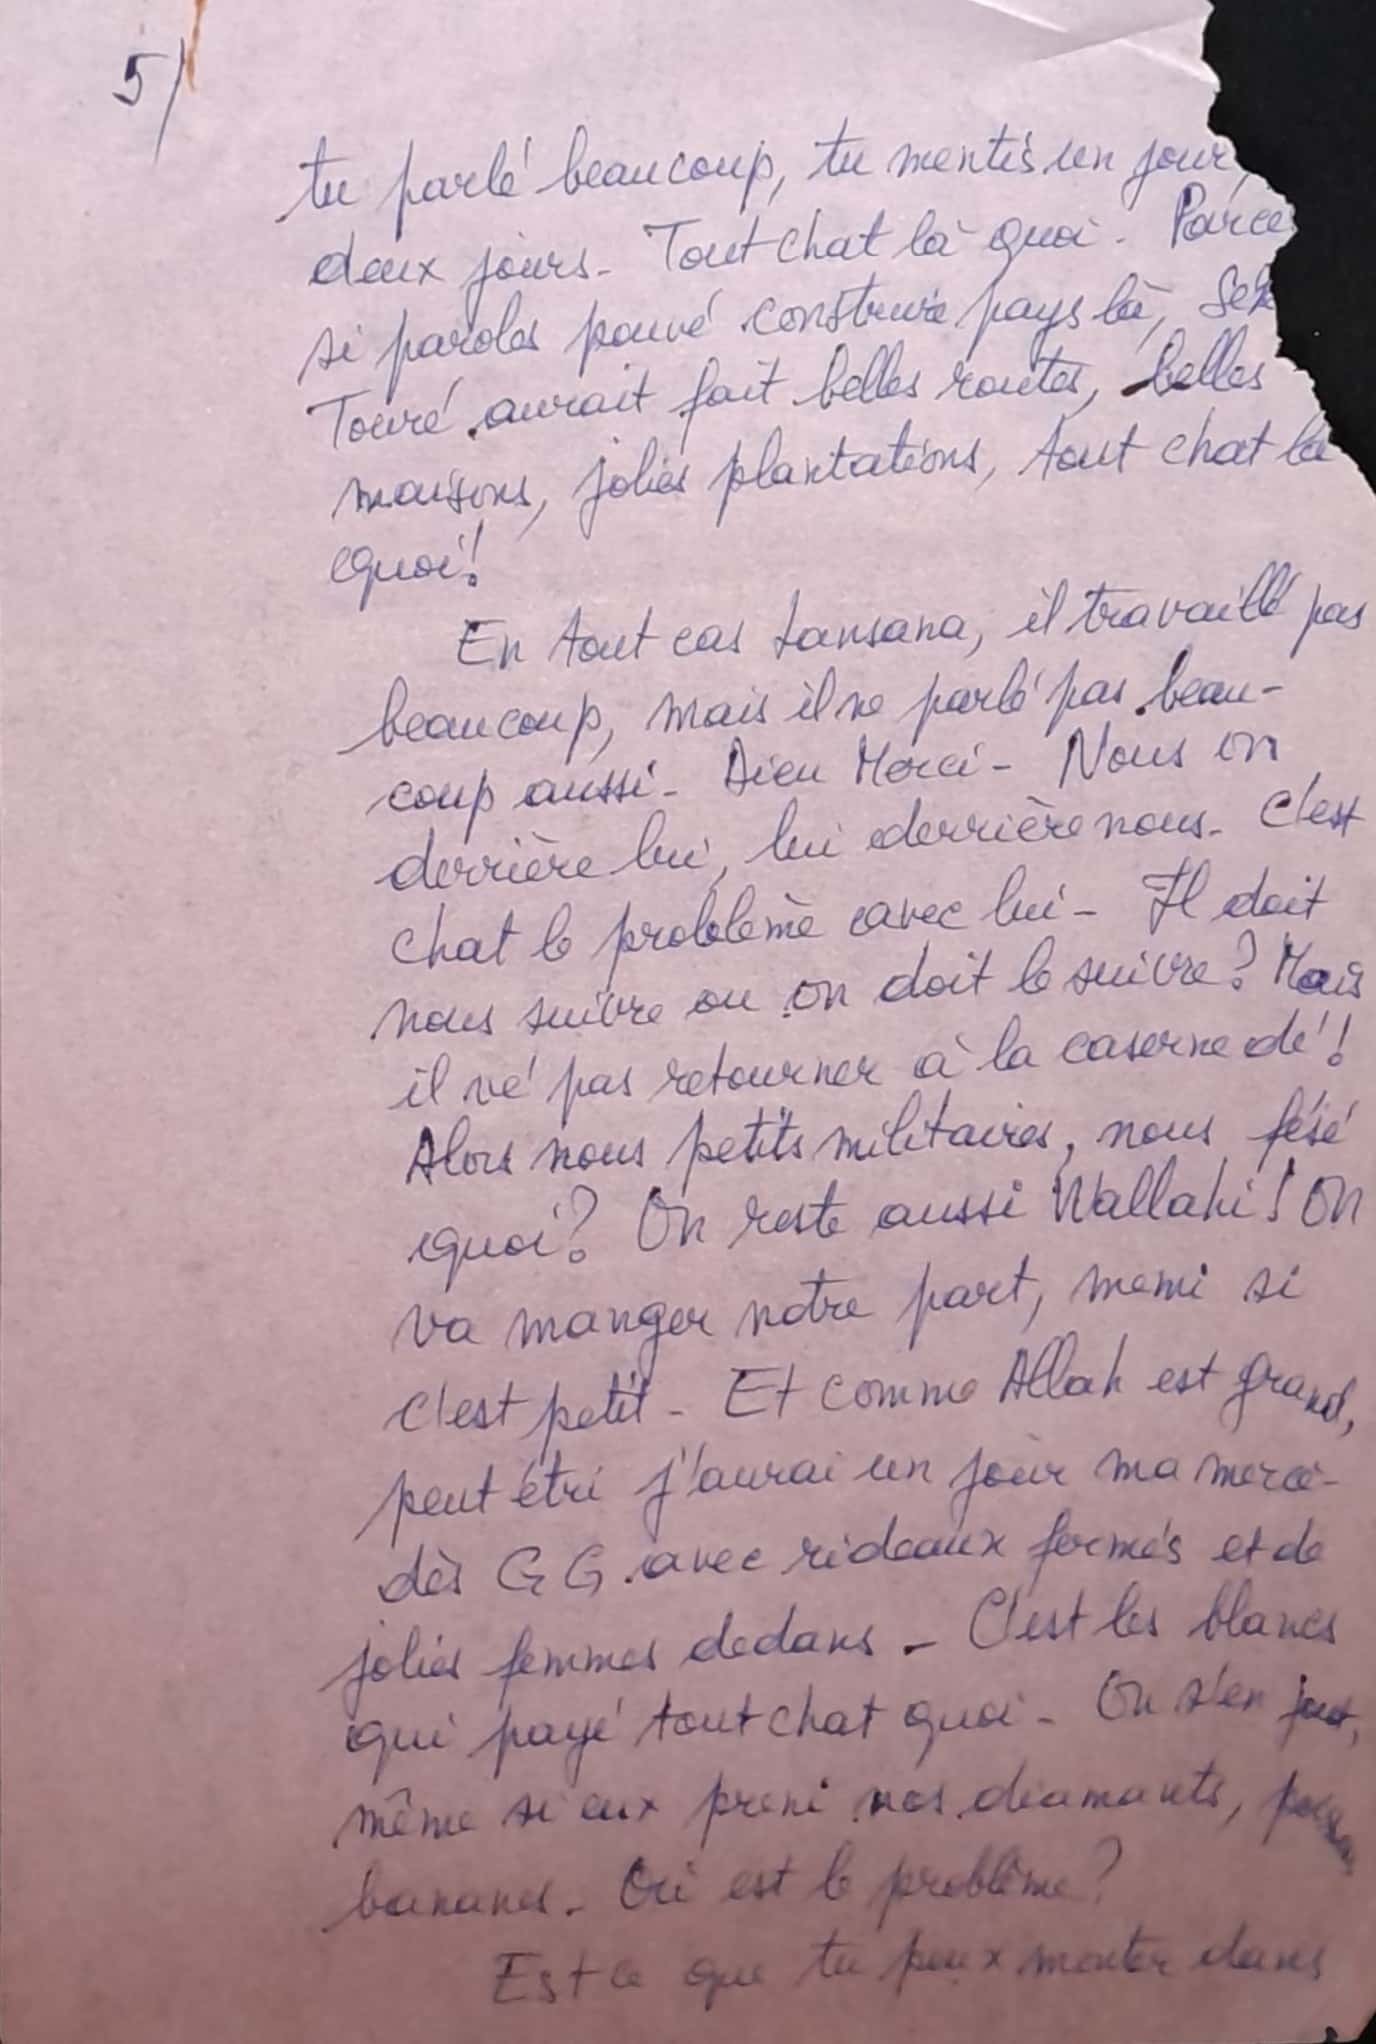 5/
tu parlé beaucoup, tu mentis un jour,
deux jours. Tout chat là quoi. Parce
si paroles pouvé construire pays là, Sék
Touré aurait fait belles routes, belles
maisons, jolies plantations, tout chat là
quoi!
En tout cas Lansana, il travaillé pas
beaucoup, mais il ne parlé pas beau-
coup aussi. Dieu Merci. Nous on
derrière lui, lui derrière nous. C'est
chat le problème avec lui. Il doit
nous suivre ou on doit le suivre? Mais
il vé pas retourner à la caserne dé!
Alors nous petits militaires, nous fésé
quoi? On reste aussi Wallahi! On
va manger notre part, memi si
c'est petit. Et comme Allah est grand,
peut étri j'aurai un jour ma merce-
dès GG avec rideaux fermés et de
jolies femmes dedans. C'est les blancs
qui payé tout chat quoi. On s'en fout,
même si eux preni nos diamants,
bananes. Où est le problème?
Est ce que tu peux monter dans